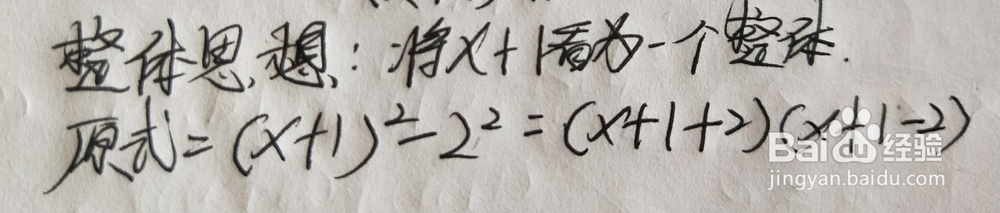 整体思想：将x+1看为一个整体.
原式=(x+1)²-2²=(x+1+2)(x+1-2)
Baidu经验
jingyan.baidu.com